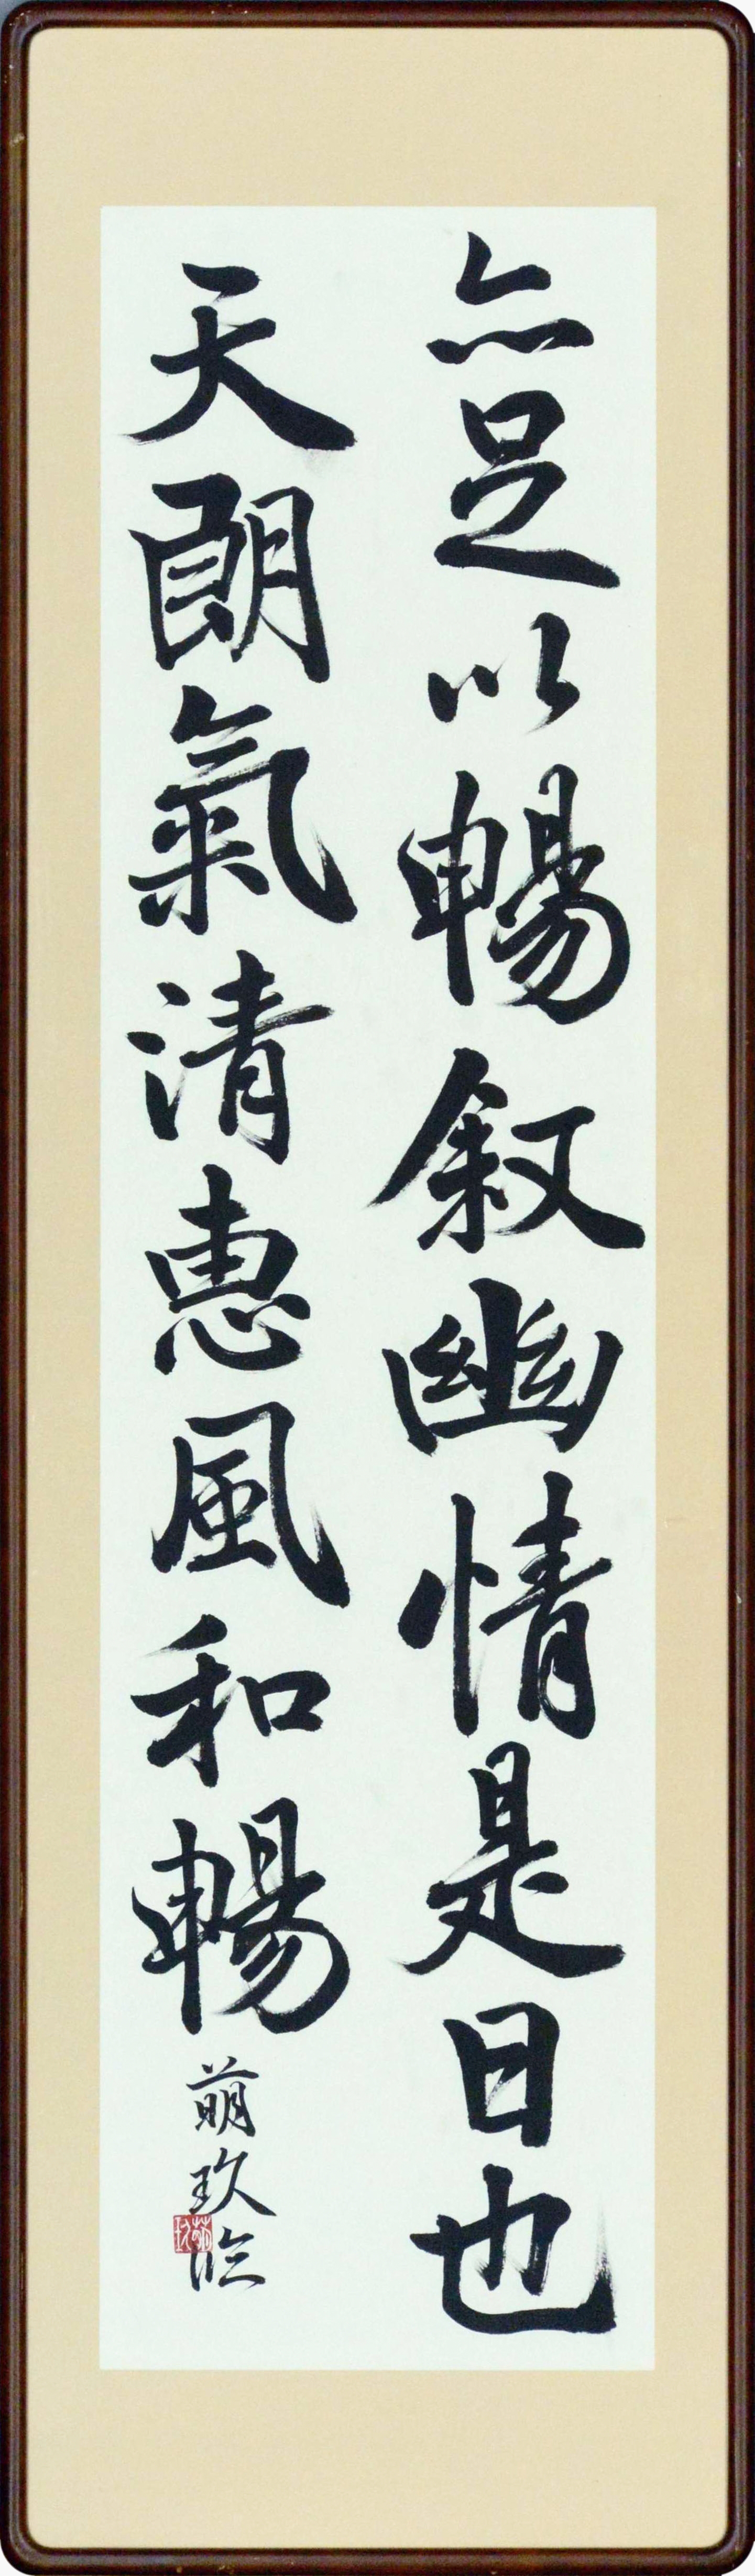 亦足以暢叙幽情是日也
天朗氣清惠風和暢
萌玖臨